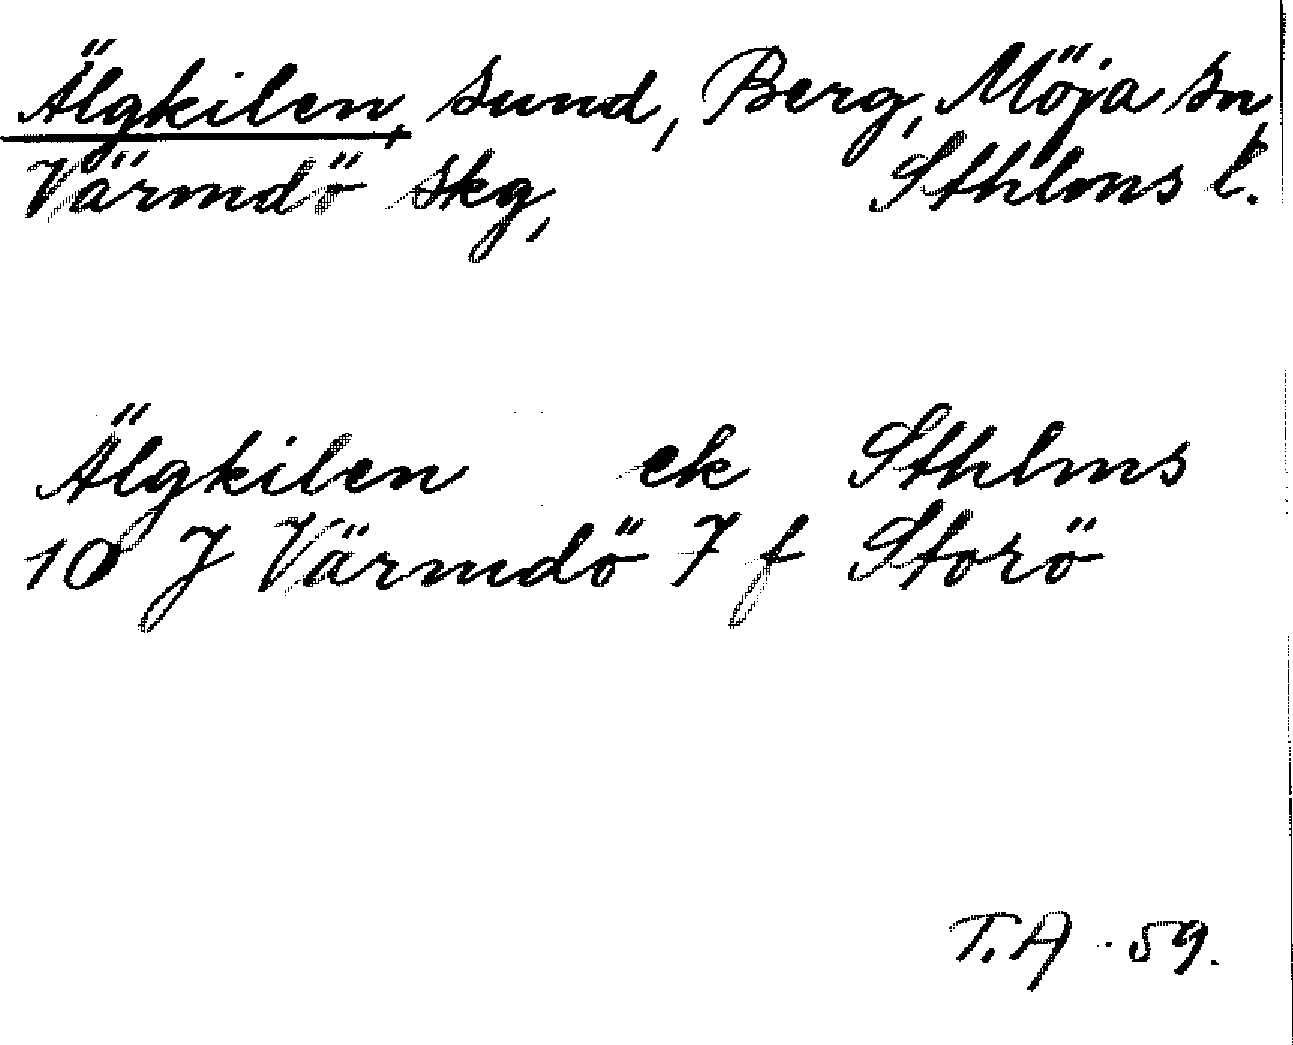 Älgkilen, sund, Berg, Möja sn,
Värmdö skg, Sthlms l.
Älgkilen ek Sthlms
10 J Värmdö 7 f Storö
T. A. 59.